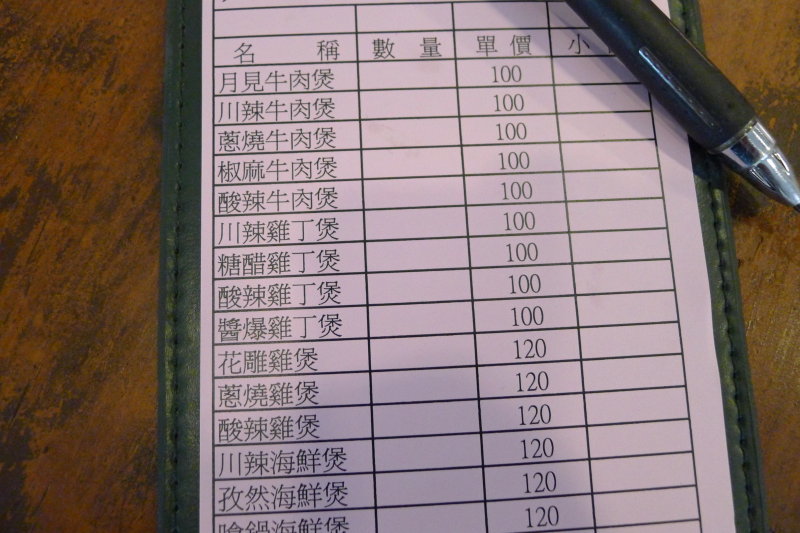 名 稱 數 量 單 價 小
月見牛肉煲 100
川辣牛肉煲 100
蔥燒牛肉煲 100
椒麻牛肉煲 100
酸辣牛肉煲 100
川辣雞丁煲 100
糖醋雞丁煲 100
酸辣雞丁煲 100
醬爆雞丁煲 100
花雕雞煲 120
蔥燒雞煲 120
酸辣雞煲 120
川辣海鮮煲 120
孜然海鮮煲 120
嗆鍋海鮮煲 120